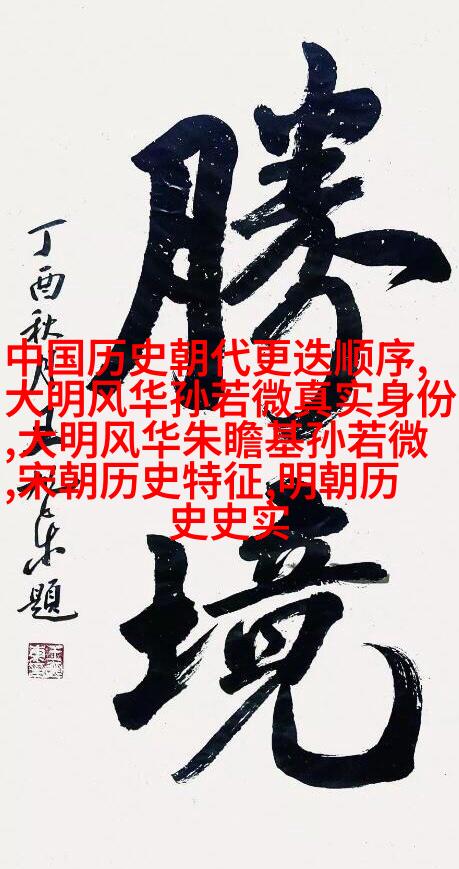 勝境
丁酉秋月 題
中国历史朝代更迭顺序,
大明风华孙若微真实身份
,大明风华朱瞻基孙若微
,宋朝历史特征,明朝历
史史实